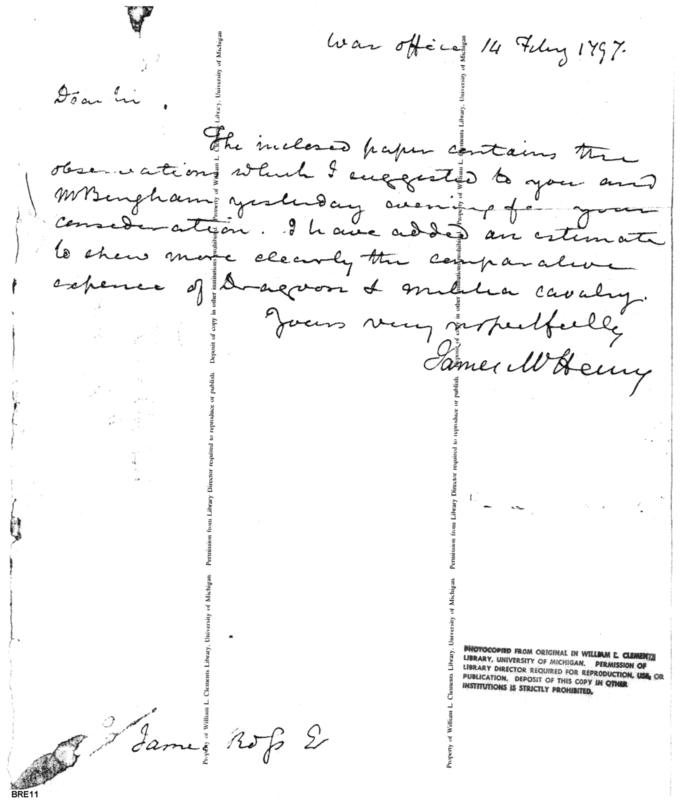 War office 14 Feby 1797.
Dear Sir,
The inclosed paper contains the
observations which I suggested to you and
Mr Bingham yesterday evening for your
consideration. I have added an estimate
to shew more clearly the comparative
expence of Dragoon & militia cavalry.
Yours very respectfully
James McHenry
James Ross E
Property of William L. Clements Library, University of Michigan. Permission from Library Director required to reproduce or publish. Deposit of copy in other institutions prohibited. Property of William L. Clements Library, University of Michigan
Property of William L. Clements Library, University of Michigan. Permission from Library Director required to reproduce or publish. Deposit of copy in other institutions prohibited. Property of William L. Clements Library, University of Michigan
PHOTOCOPIED FROM ORIGINAL IN WILLIAM L. CLEMENTS
LIBRARY, UNIVERSITY OF MICHIGAN. PERMISSION OF
LIBRARY DIRECTOR REQUIRED FOR REPRODUCTION, USE, OR
PUBLICATION. DEPOSIT OF THIS COPY IN OTHER
INSTITUTIONS IS STRICTLY PROHIBITED.
BRE11